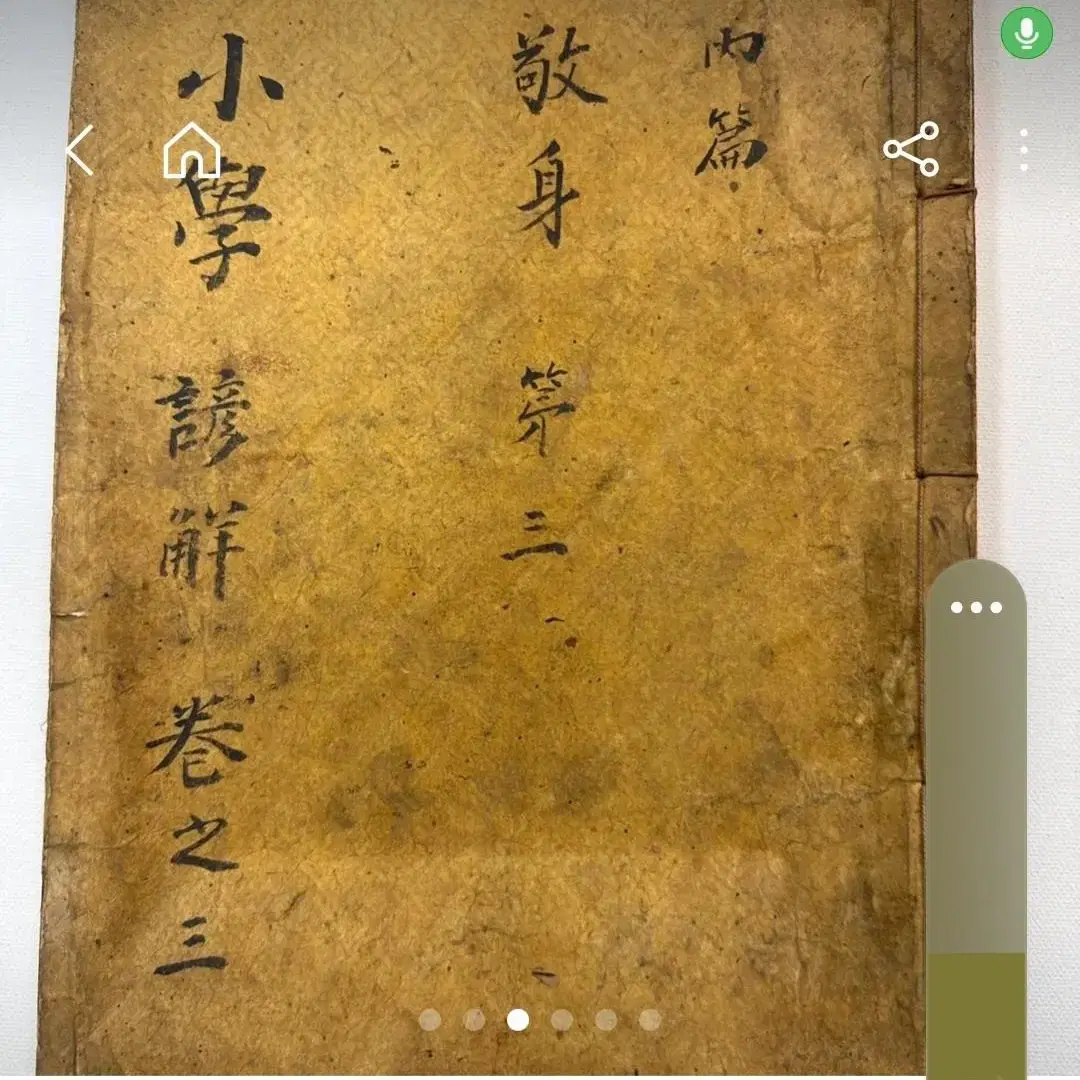 內篇
敬身 第三
小學 諺解 卷之三